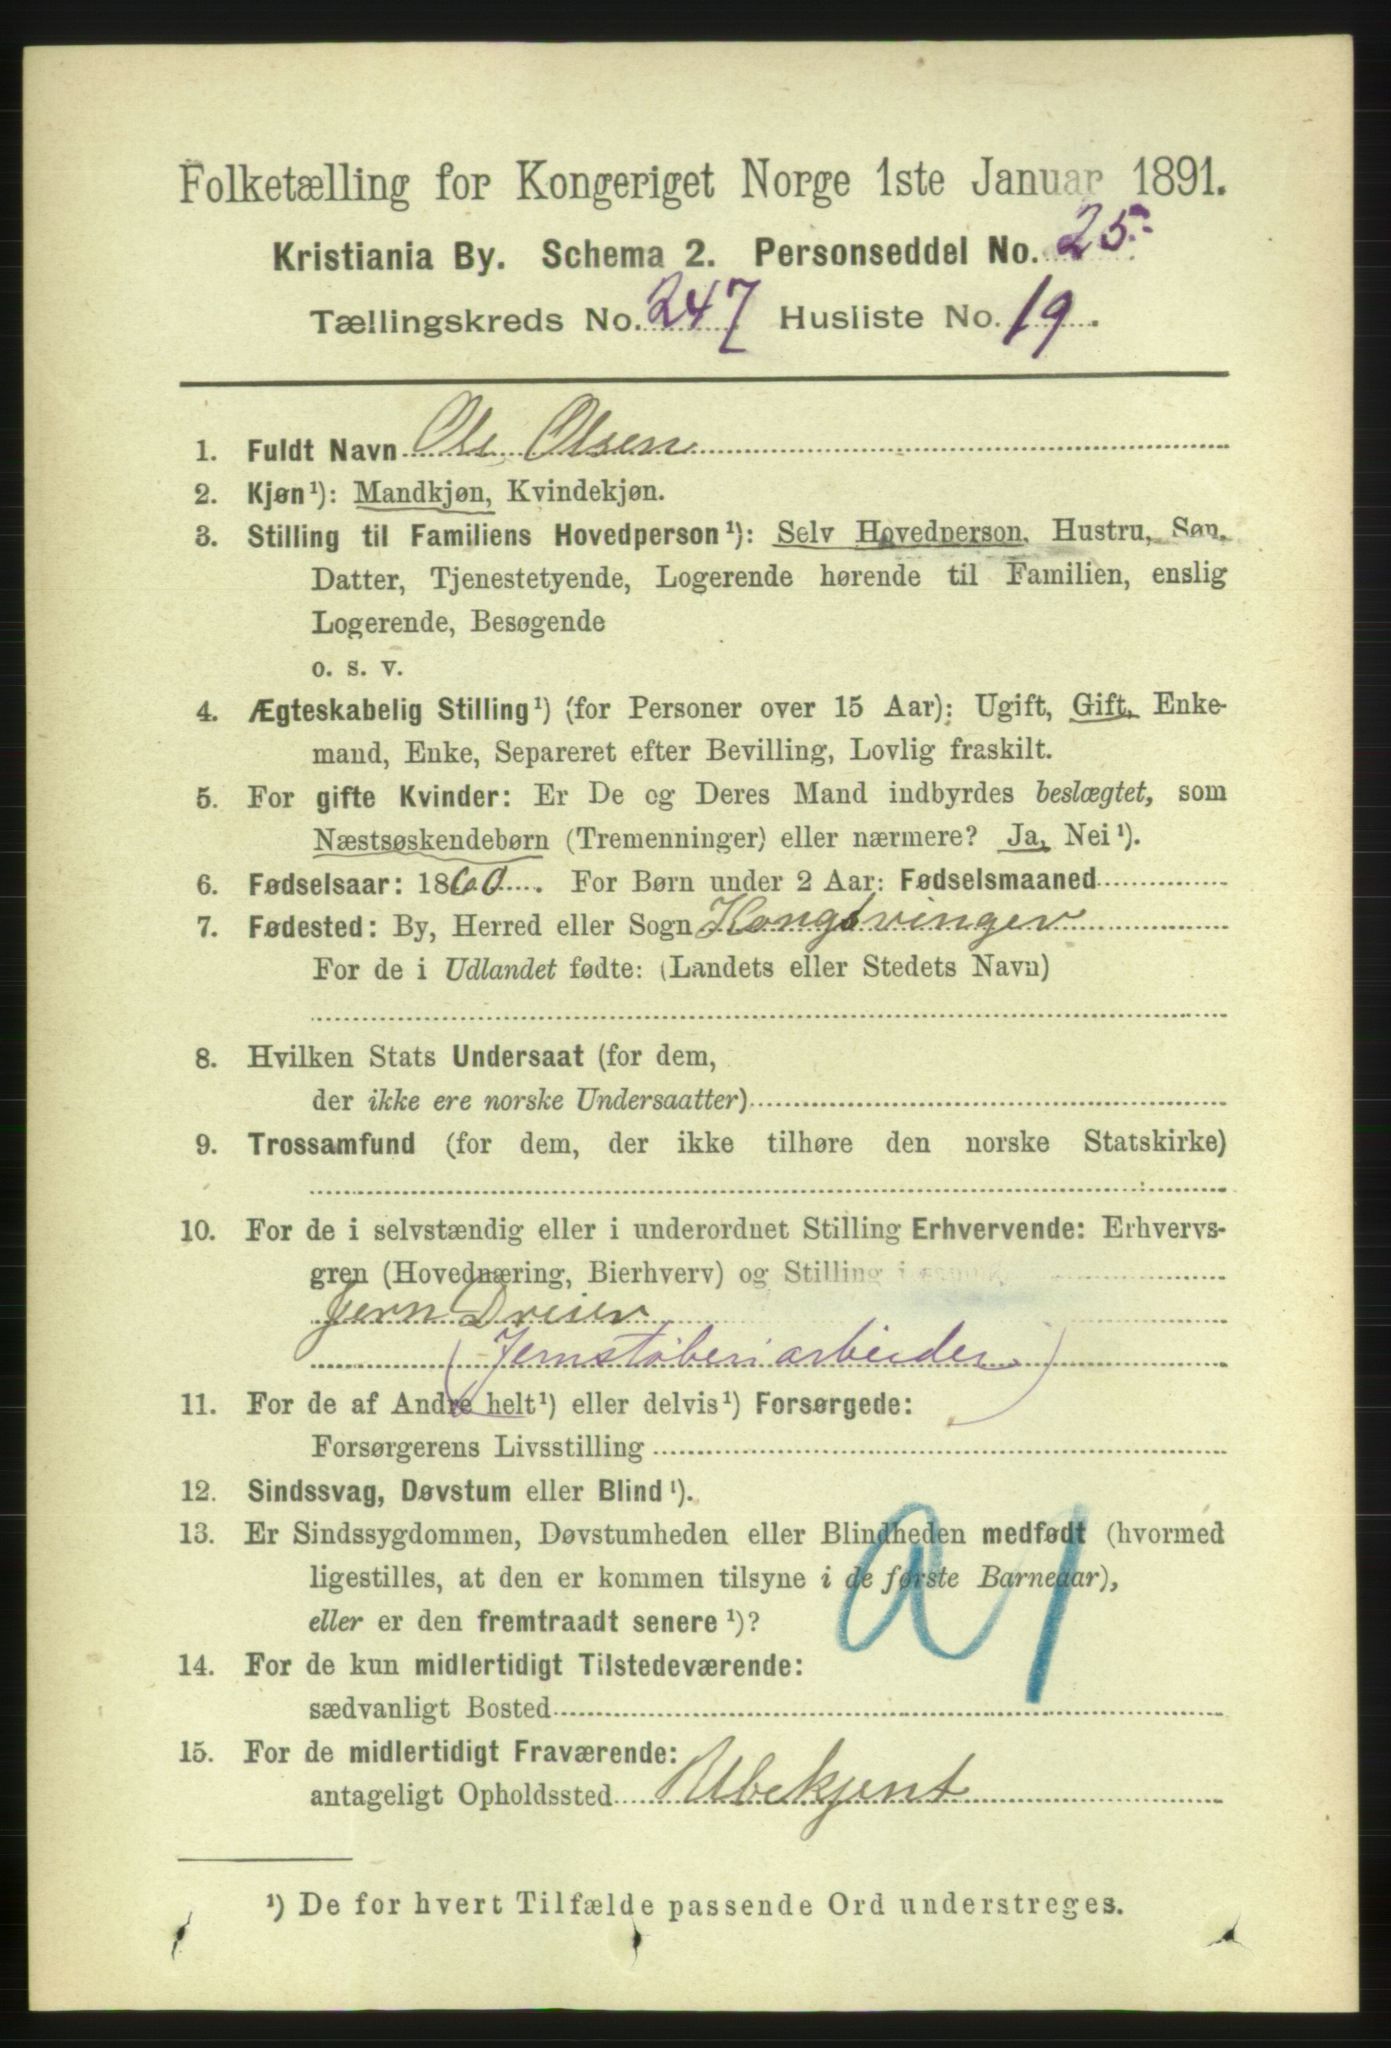 Folketælling for Kongeriget Norge 1ste Januar 1891.
Kristiania By. Schema 2. Personseddel No. 25.
Tællingskreds No. 247 Husliste No. 19.
1. Fuldt Navn Ole Olsen
2. Kjøn¹): Mandkjøn, Kvindekjøn.
3. Stilling til Familiens Hovedperson¹): Selv Hovedperson, Hustru, Søn,
Datter, Tjenestetyende, Logerende hørende til Familien, enslig
Logerende, Besøgende
o. s. v.
4. Ægteskabelig Stilling¹) (for Personer over 15 Aar): Ugift, Gift, Enke-
mand, Enke, Separeret efter Bevilling, Lovlig fraskilt.
5. For gifte Kvinder: Er De og Deres Mand indbyrdes beslægtet, som
Næstsøskendebørn (Tremenninger) eller nærmere? Ja, Nei¹).
6. Fødselsaar: 1860. For Børn under 2 Aar: Fødselsmaaned
7. Fødested: By, Herred eller Sogn Kongsvinger
For de i Udlandet fødte: (Landets eller Stedets Navn)
8. Hvilken Stats Undersaat (for dem,
der ikke ere norske Undersaatter)
9. Trossamfund (for dem, der ikke tilhøre den norske Statskirke)
10. For de i selvstændig eller i underordnet Stilling Erhvervende: Erhvervs-
gren (Hovednæring, Bierhverv) og Stilling i samme
Jern Dreier
(Jernstøberiarbeider)
11. For de af Andre helt¹) eller delvis¹) Forsørgede:
Forsørgerens Livsstilling
12. Sindssvag, Døvstum eller Blind¹).
13. Er Sindssygdommen, Døvstumheden eller Blindheden medfødt (hvormed
ligestilles, at den er kommen tilsyne i de første Barneaar),
eller er den fremtraadt senere¹)?
a 1
14. For de kun midlertidigt Tilstedeværende:
sædvanligt Bosted
15. For de midlertidigt Fraværende:
antageligt Opholdssted Ubekjent
¹) De for hvert Tilfælde passende Ord understreges.